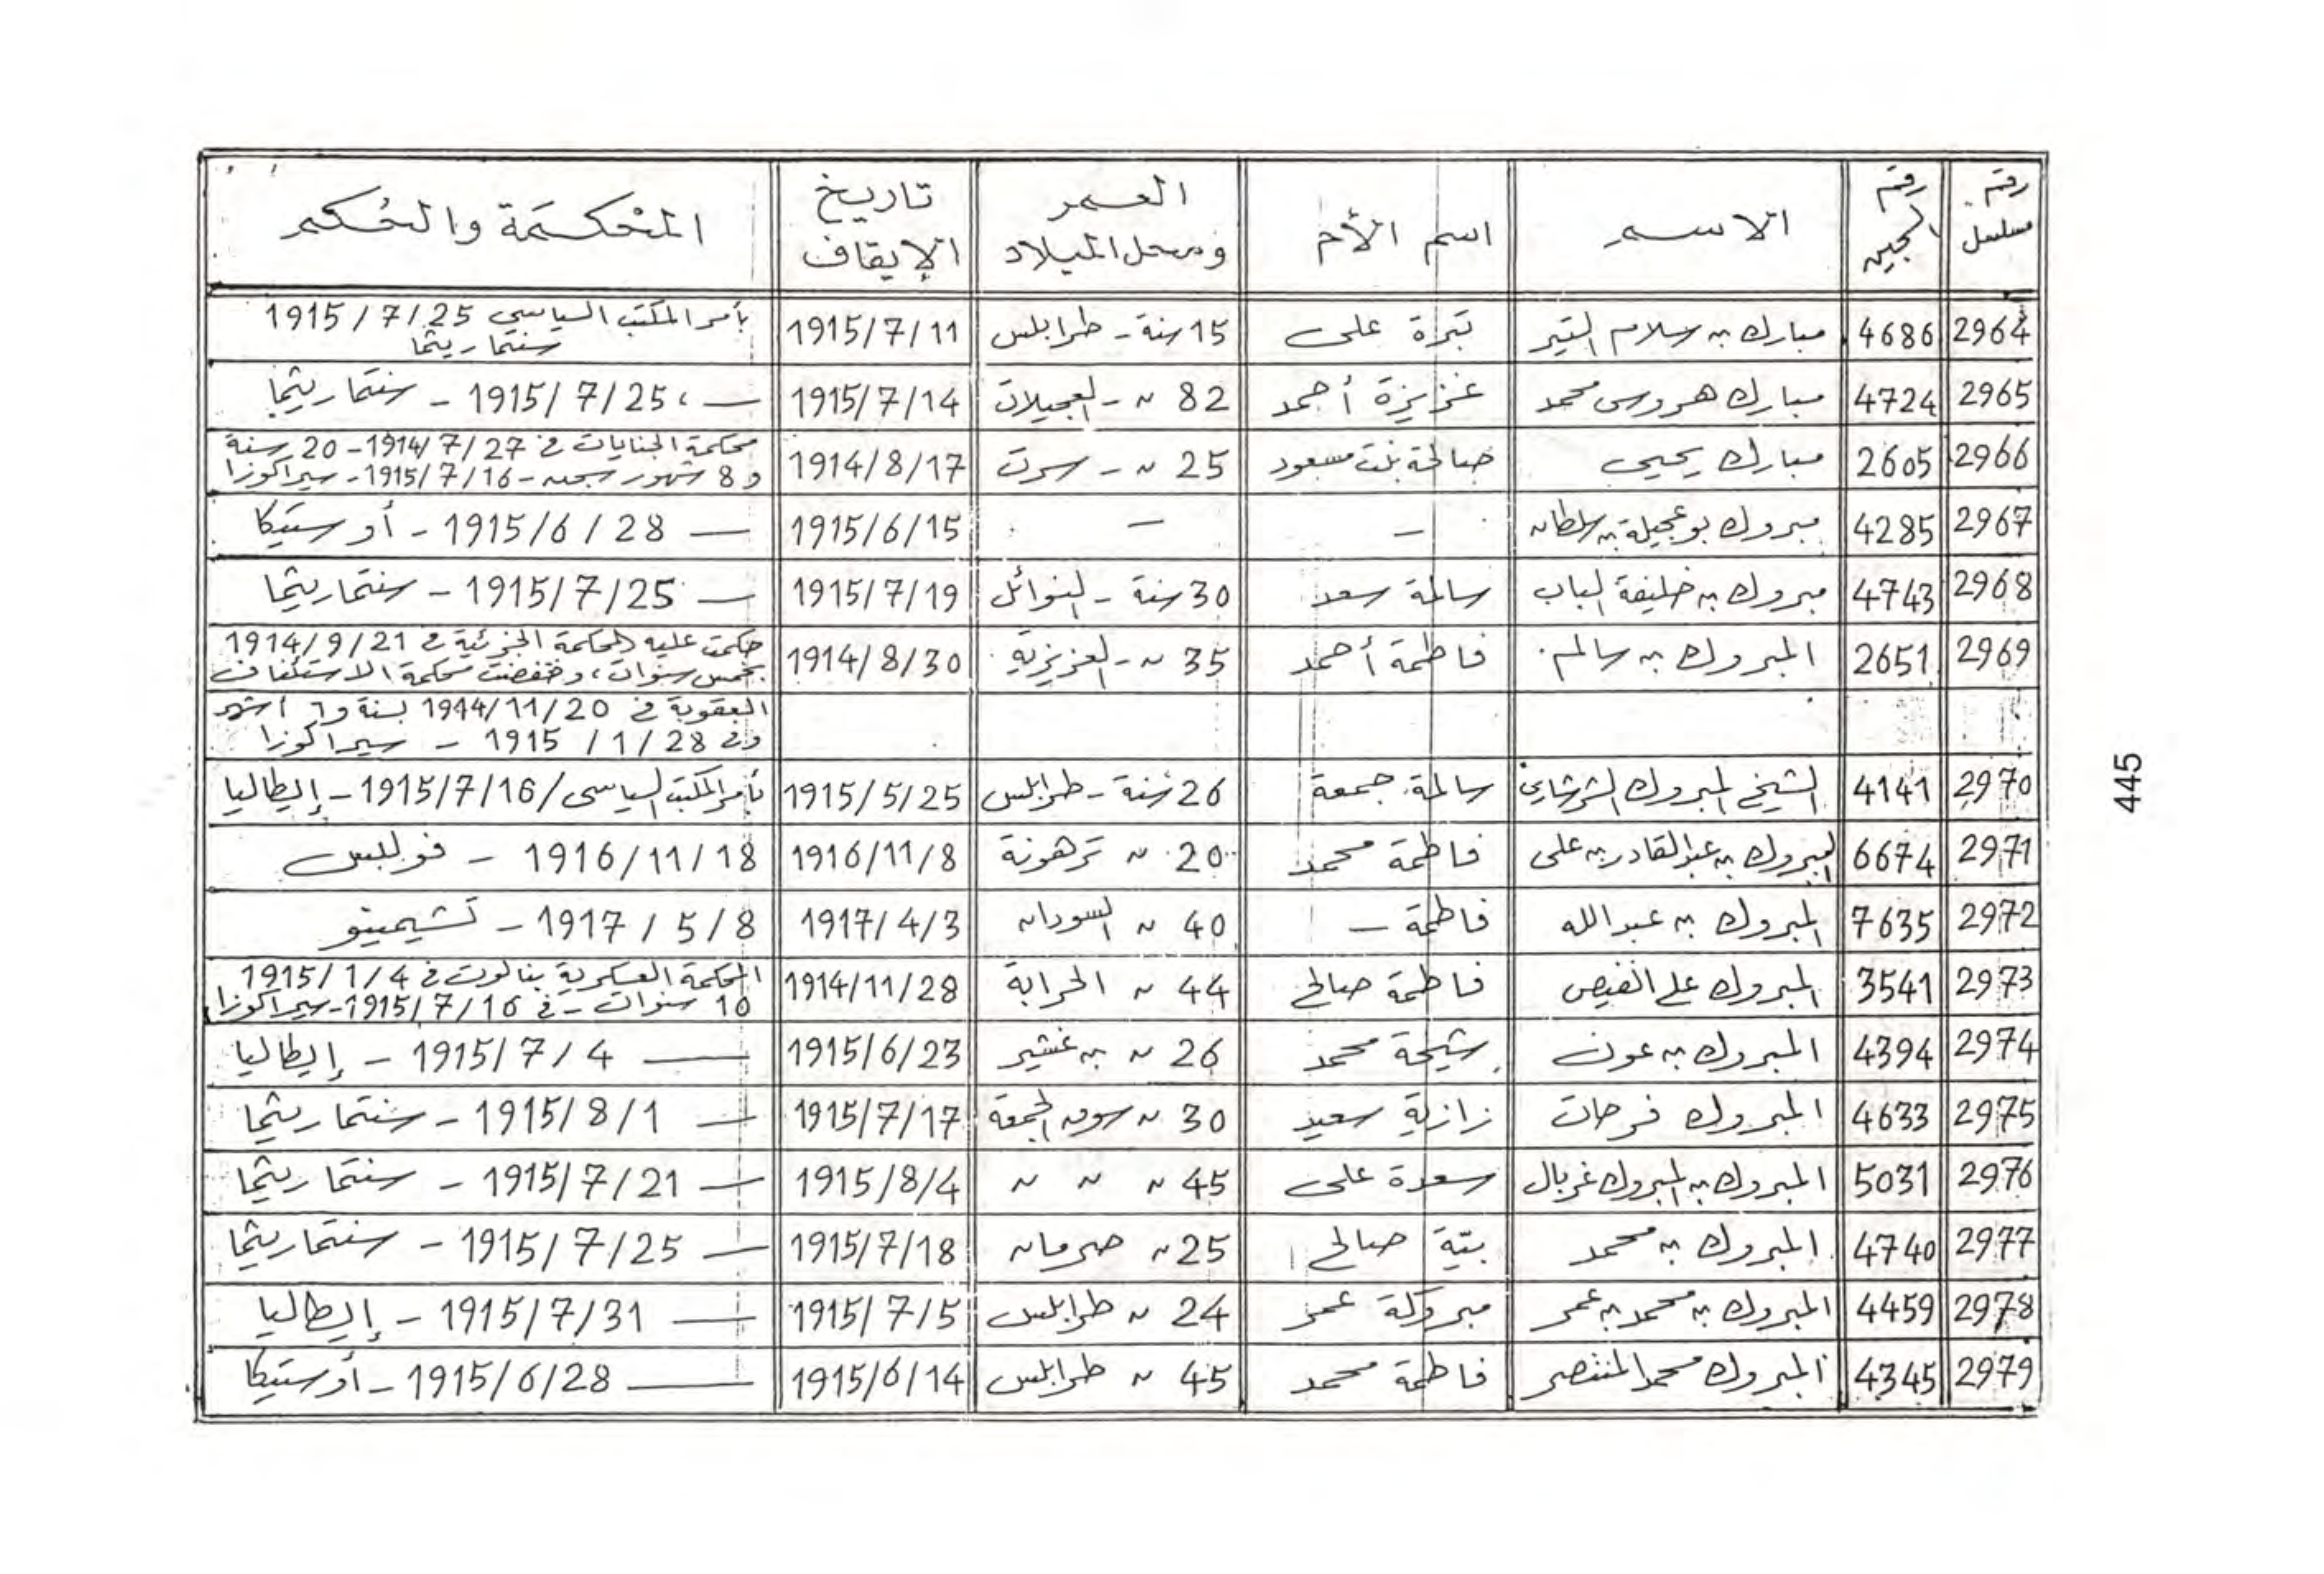 رقم مسلسل | رقم السجين | الاسم | اسم الأم | العمر ومحل الميلاد | تاريخ الإيقاف | المحكمة والحكم
2964 | 4686 | مبارك بن سلام التير | تبرة على | 15 سنة - طرابلس | 1915/7/11 | بأمر المكتب السياسي 1915/7/25 سنتماريتما
2965 | 4724 | مبارك هروس محمد | عزيزة أحمد | 82 " - العجيلات | 1915/7/14 | — ، 1915/7/25 - سنتماريتما
2966 | 2605 | مبارك يحيى | صالحة بنت مسعود | 25 " - سرت | 1914/8/17 | محكمة الجنايات في 1914/7/27 - 20 سنة
و 8 شهور سجن - 1915/7/16 - سيراكوزا
2967 | 4285 | مبروك بوعجيلة بن سلطان | - | - | 1915/6/15 | — 1915/6/28 - أوستيكا
2968 | 4743 | مبروك بن خليفة الباب | سالمة سعد | 30 سنة - النوائل | 1915/7/19 | — 1915/7/25 - سنتماريتما
2969 | 2651 | المبروك بن سالم | فاطمة أحمد | 35 " - العزيزية | 1914/8/30 | حكمت عليه المحكمة الجزئية في 1914/9/21
بخمس سنوات، وخفضت محكمة الاستئناف
العقوبة في 1914/11/20 لسنة و 6 أشهر
وفي 1915/1/28 - سيراكوزا
2970 | 4141 | الشيخ المبروك الشرشاري | سالمة جمعة | 26 سنة - طرابلس | 1915/5/25 | بأمر المكتب السياسى / 1915/7/16 - إيطاليا
2971 | 6674 | المبروك بن عبد القادر بن على | فاطمة محمد | 20 " ترهونة | 1916/11/8 | 1916/11/18 - فوللس
2972 | 7635 | المبروك بن عبد الله | فاطمة - | 40 " السودان | 1917/4/3 | 1917/5/8 - تشيمينو
2973 | 3541 | المبروك على الفيص | فاطمة صالح | 44 " الحرابة | 1914/11/28 | المحكمة العسكرية بنالوت في 1915/1/4
10 سنوات - في 1915/7/16 - سيراكوزا
2974 | 4394 | المبروك بن عون | شيحة محمد | 26 " بن غشير | 1915/6/23 | — 1915/7/4 - إيطاليا
2975 | 4633 | المبروك فرحات | زازية سعيد | 30 " سوق الجمعة | 1915/7/17 | — 1915/8/1 - سنتماريتما
2976 | 5031 | المبروك بن المبروك غربال | سعدة على | 45 " " " | 1915/8/4 | — 1915/7/21 - سنتماريتما
2977 | 4740 | المبروك بن محمد | بيّة صالح | 25 " صرمان | 1915/7/18 | — 1915/7/25 - سنتماريتما
2978 | 4459 | المبروك بن محمد بن عمر | مبروكة عمر | 24 " طرابلس | 1915/7/5 | — 1915/7/31 - إيطاليا
2979 | 4345 | المبروك محمد المنتصر | فاطمة محمد | 45 " طرابلس | 1915/6/14 | — 1915/6/28 - أوستيكا
445